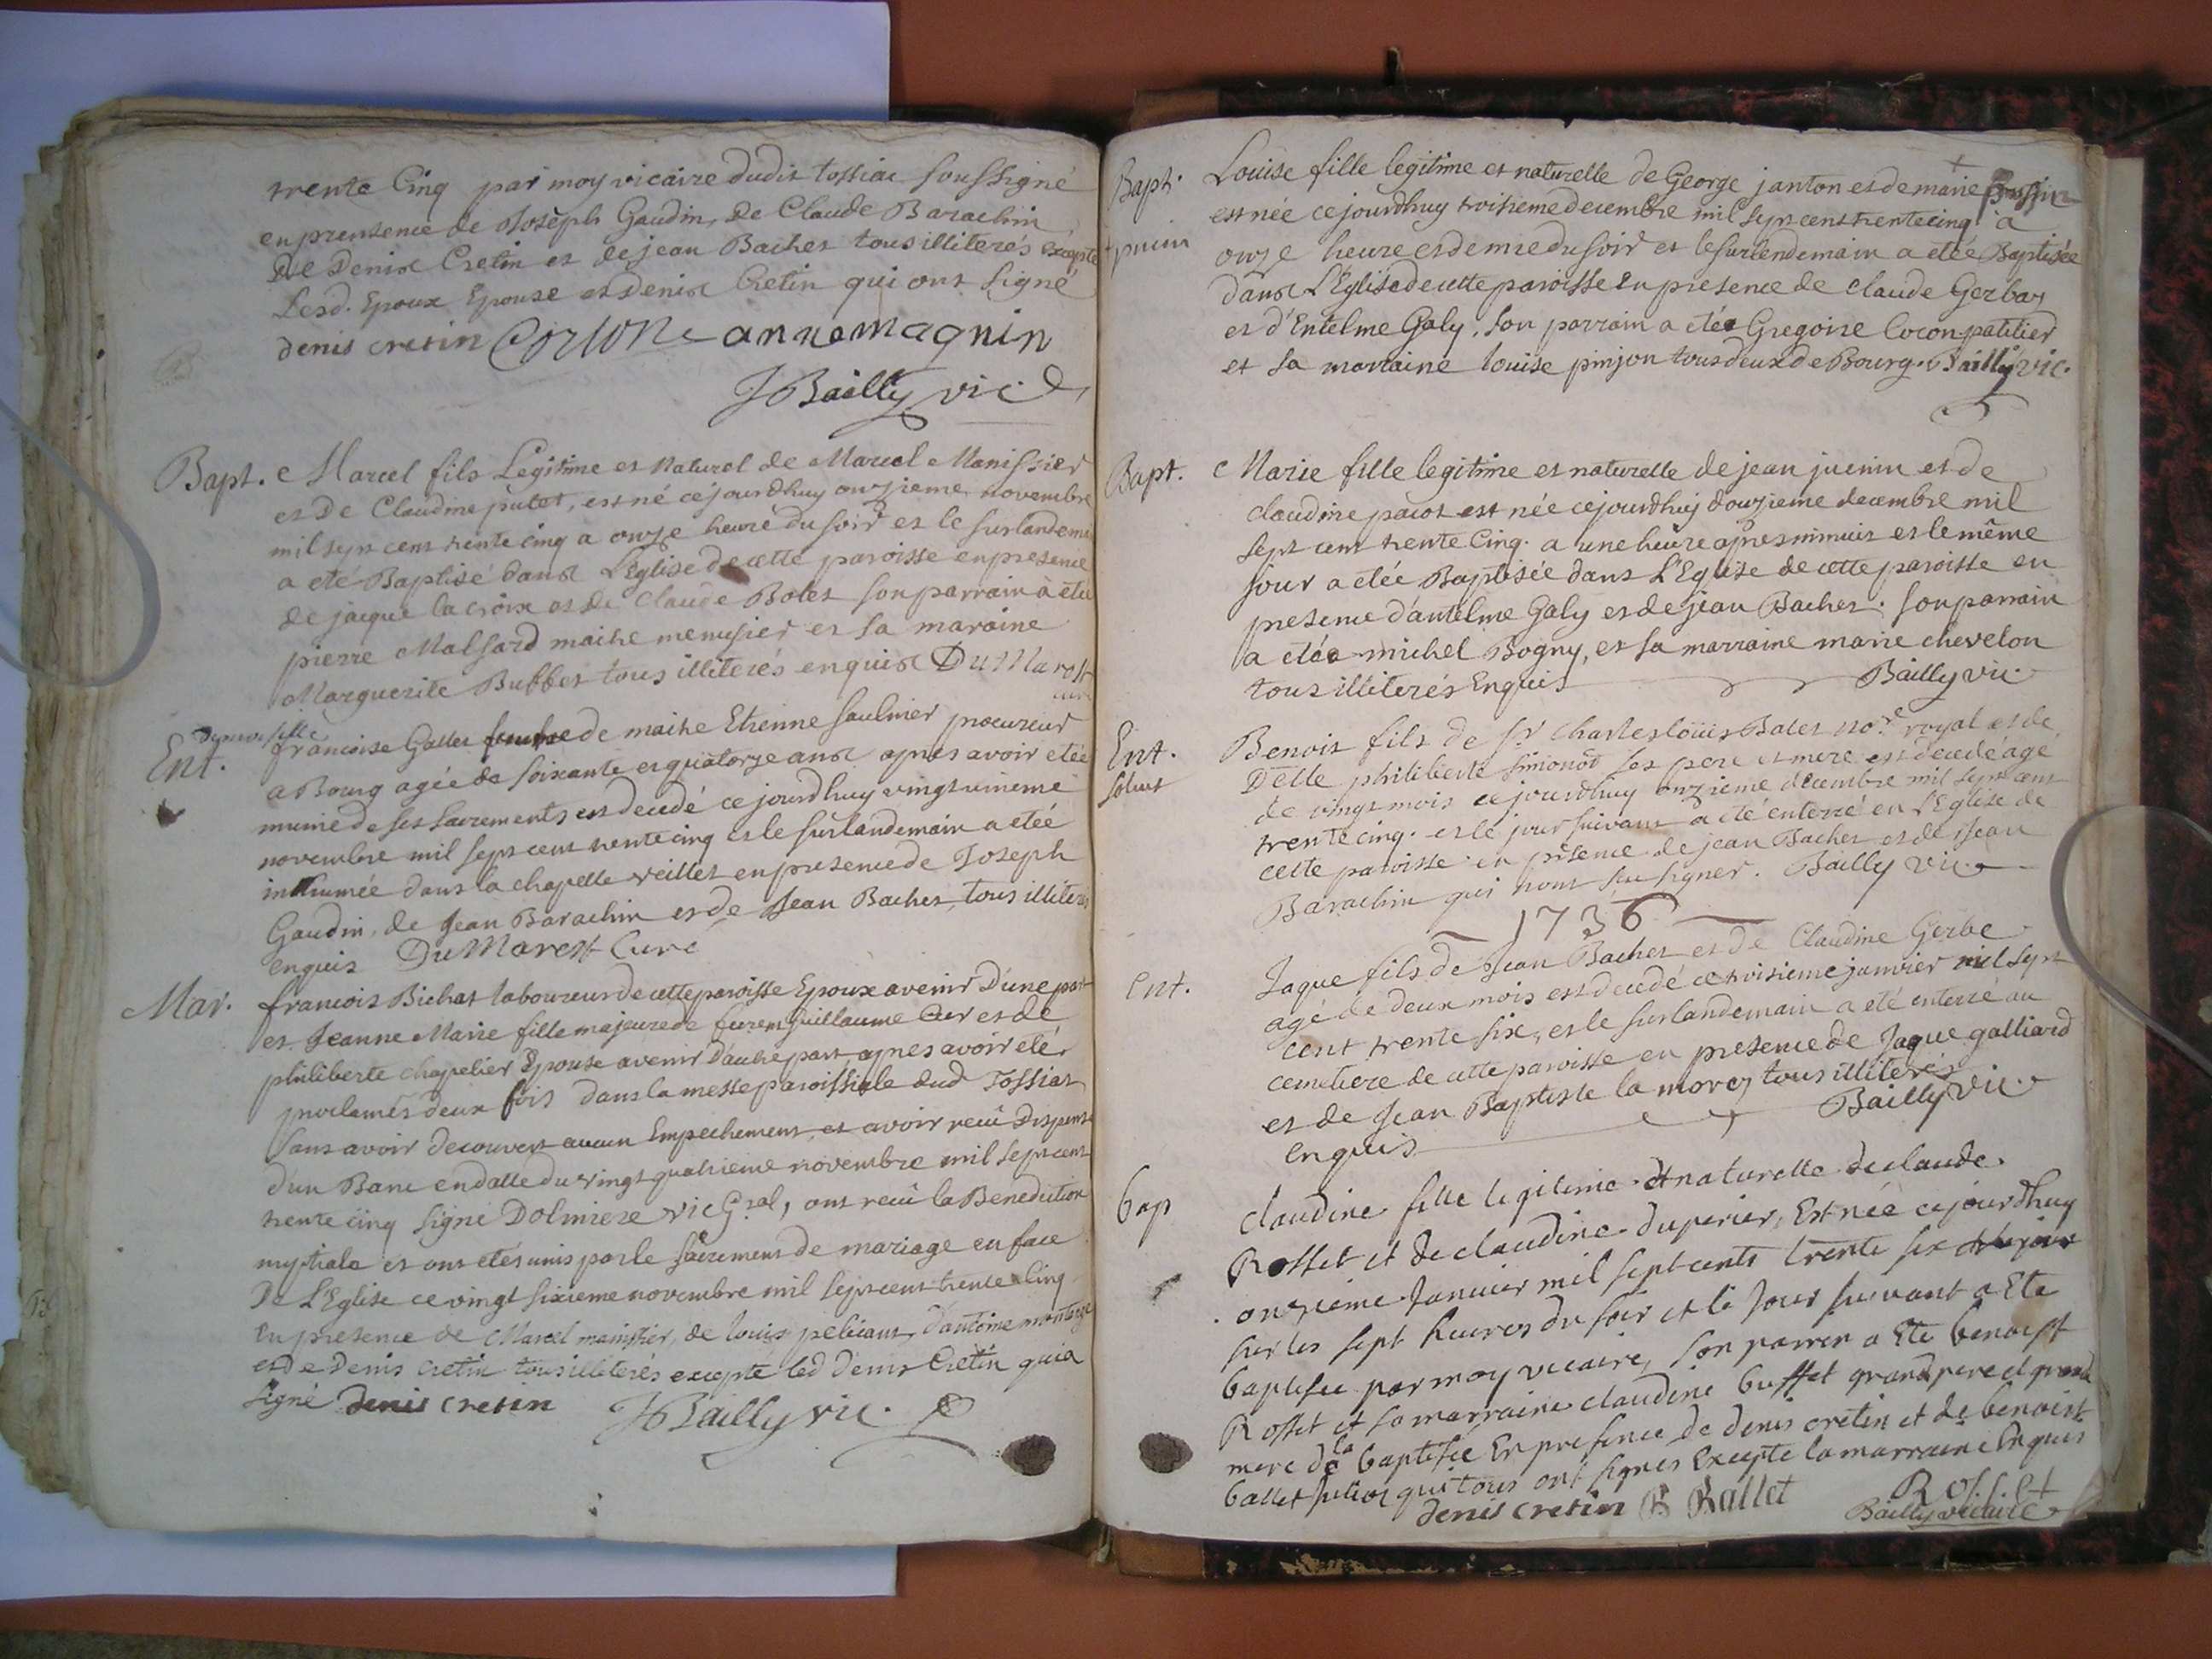 trente Cinq par moy vicaire dudit tossiac soussigné
en presence de Joseph Gaudin, de Claude Barachin
De Denis Cretin et de jean Bachet tous illiterés excepté
Lesd. Epoux Epouse et Denis Cretin qui ont signé
denis cretin anne magnin
JBailly vic
Bapt. Marcel fils Legitime et Naturel de Marcel Manissier
et De Claudine putet, est né cejourdhuy onzieme novembre
mil sept cent trente cinq a onze heure du soir et le surlandemain
a eté Baptisé dans L'Eglise de cette paroisse en presence
de jacque la croix et de Claude Bolet son parrain à eté
pierre Malfard maitre menusier et sa maraine
Marguerite Buffet tous illiterés enquis DuMarest
curé
Demoiselle
Ent. francoise Gallet de maitre Etienne saulnier procureur
a Bourg agée de soixante et quatorze ans apres avoir etée
munie de ses sacrements est decedé ce jourdhuy vingt unieme
novembre mil sept cent trente cinq et le surlandemain a etée
inhumée dans la chapelle veillet en presence de Joseph
Gaudin, de Jean Barachin et de Jean Bachet, tous illiteres
enquis DuMarest Curé
Mar. francois Bichat laboureur de cette paroisse Epoux avenir D'une part
et Jeanne Marie fille majeure de feu guillaume et de
philiberte chapelier Epouse avenir D'autre part, apres avoir eté
proclamés deux fois dans la messe paroissiale dud Tossiat
sans avoir decouvert aucun Empechement et avoir recu Dispense
d'un Banc en datte du vingt quatrieme novembre mil sept cent
trente cinq signé Dolmiere vic Gral, ont recu la Benediction
nuptiale et ont etés unis par le sacrement de mariage en face
De L'Eglise ce vingt sixieme novembre mil sept cent trente Cinq
En presence de Marcel manissier, de louis pelicant, d'antoine
et de Denis cretin tous illiterés excepté led Denis Cretin qui a
signé denis cretin JBailly vic.
Bapt. Louise fille legitime et naturelle de George janton et de marie
est née cejourdhuy troisieme decembre mil sept cent trente cinq a
onze heure et demie du soir et le surlendemain a etée Baptisée
dans L'Eglise de cette paroisse En presence de claude Gerbay
et d'Entelme Galy. son parrain a etée Gregoire Cocon patitier
et sa marraine louise pinjon tous deux de Bourg. Bailly vic.
Bapt. Marie fille legitime et naturelle de jean juenin et de
claudine pacot est née cejourdhuy douzieme decembre mil
sept cent trente Cinq. a une heure apres minuit et le même
jour a etée Baptisée dans L'Eglise de cette paroisse en
presence d'antelme Galy et de jean Bachet. son parrain
a etée michel Bogny, et sa marraine marie chevelon
tous illiterés Enquis Bailly vic
Ent. Benoit fils de sr. charles louis Balet nore. royal et de
Delle philiberte simonot ses pere et mere est decedé agé
de vingt mois ce jourdhuy onzieme decembre mil sept cent
trente cinq. et le jour suivant a eté enterré en L'Eglise de
cette paroisse en presence de jean Bachet et de Jean
Barachin qui n'ont su signer. Bailly vic
1736
Ent. Jaque fils de Jean Bachet et de Claudine Gerbe
agé de deux mois est decedé ce troisieme janvier mil sept
cent trente six, et le surlandemain a eté enterré au
cemetiere de cette paroisse en presence de Jaque galliard
et de Jean Baptiste la morey tous illiterés
enquis Bailly vic
bap Claudine fille legitime et naturelle de claude
Rosset et de claudine duperier, Est née cejourdhuy
onzieme Janvier mil sept cents trente six
sur les sept heures du soir et le Jour suivant a Ete
baptisee par moy vicaire, son parren a Ete benoist
Rosset et sa marraine claudine buffet grand pere et grand
mere de la baptisée En presence de denis cretin et de benoist
ballet qui tous ont signes Excepte la marraine Enquis
denis cretin B Ballet Rosset
Bailly vicaire